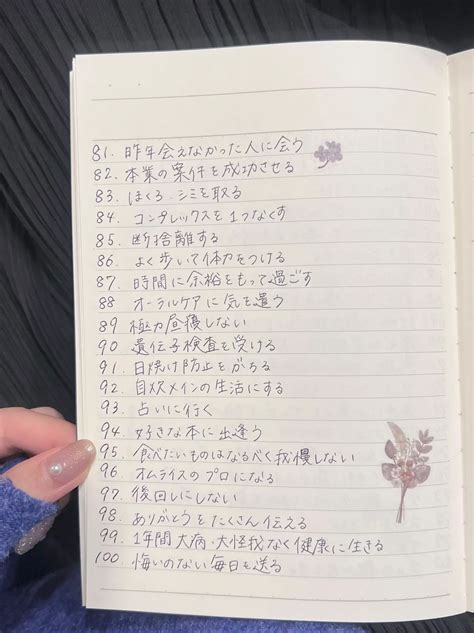 81. 昨年会えなかった人に会う
82. 本業の案件を成功させる
83. ほくろ、シミを取る
84. コンプレックスを1つなくす
85. 断捨離する
86. よく歩いて体力をつける
87. 時間に余裕をもって過ごす
88 オーラルケアに気を遣う
89 極力昼寝しない
90 遺伝子検査を受ける
91. 日焼け防止をがちる
92. 自炊メインの生活にする
93. 占いに行く
94. 好きな本に出逢う
95. 食べたいものはなるべく我慢しない
96. オムライスのプロになる
97. 後回しにしない
98. ありがとうをたくさん伝える
99. 1年間大病・大怪我なく健康に生きる
100 悔いのない毎日を送る